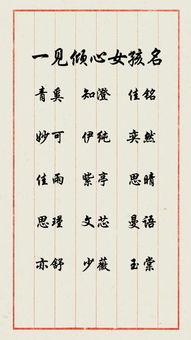 一见倾心女孩名
青奚 知澄 佳铭
妙可 伊纯 奕然
佳雨 紫亭 思晴
思瑾 文芯 曼语
亦舒 少薇 玉棠